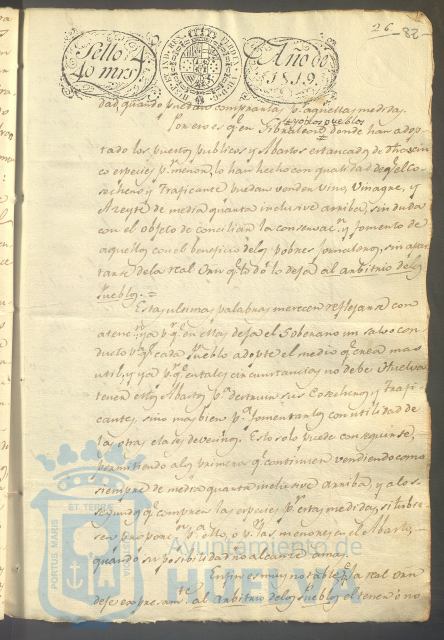 26 -82-
Sello 4º
40 mrs
Año de
1819.
dad, quando puedan comprarlas pr aquellas medidas.
Por eso es qe en Gibraleon, y otros pueblos donde han adop-
tado los puestos publicos y Abastos estancados de
especies pr menor, lo han hecho con qualidad de qe el Co-
sechero y Traficante puedan vender Vino, Vinagre, y
Azeyte de media quarta inclusive arriba, sin duda
con el objeto de conciliar la conservacn y fomento de
aquellos con el beneficio de los pobres jornaleros, sin apar-
tarse de la real Orn qe todo lo deja al arbitrio de los
Pueblos.=
Estas ultimas palabras merecen reflejarse con
atencn, ya pr qe en ellas deja el Soberano un salvo con-
ducto pa qe cada Pueblo adopte el medio qe crea mas
util, y ya pr qe en tales circunstancias no debe Huelva
tener estos Abastos pa destruir sus Cosecheros y Trafi-
cantes, sino mas bien pa fomentarlos con utilidad de
la otra clase de vecinos. Esto solo puede conseguirse,
permitiendo a los primeros qe continuen vendiendo como
siempre de media quarta inclusive arriba, y a los
segundos qe compren las especies pr estas medidas, si tubie-
sen pa ello, o pr las menores en el Abasto,
quando su posibilidad no alcance a mas.
En fin es muy notable qe la real Orn
deje expresamte al arbitrio de los Pueblos el tener o no
PORTUS MARIS
ET TERRAE
Ayuntamiento de
HUELVA